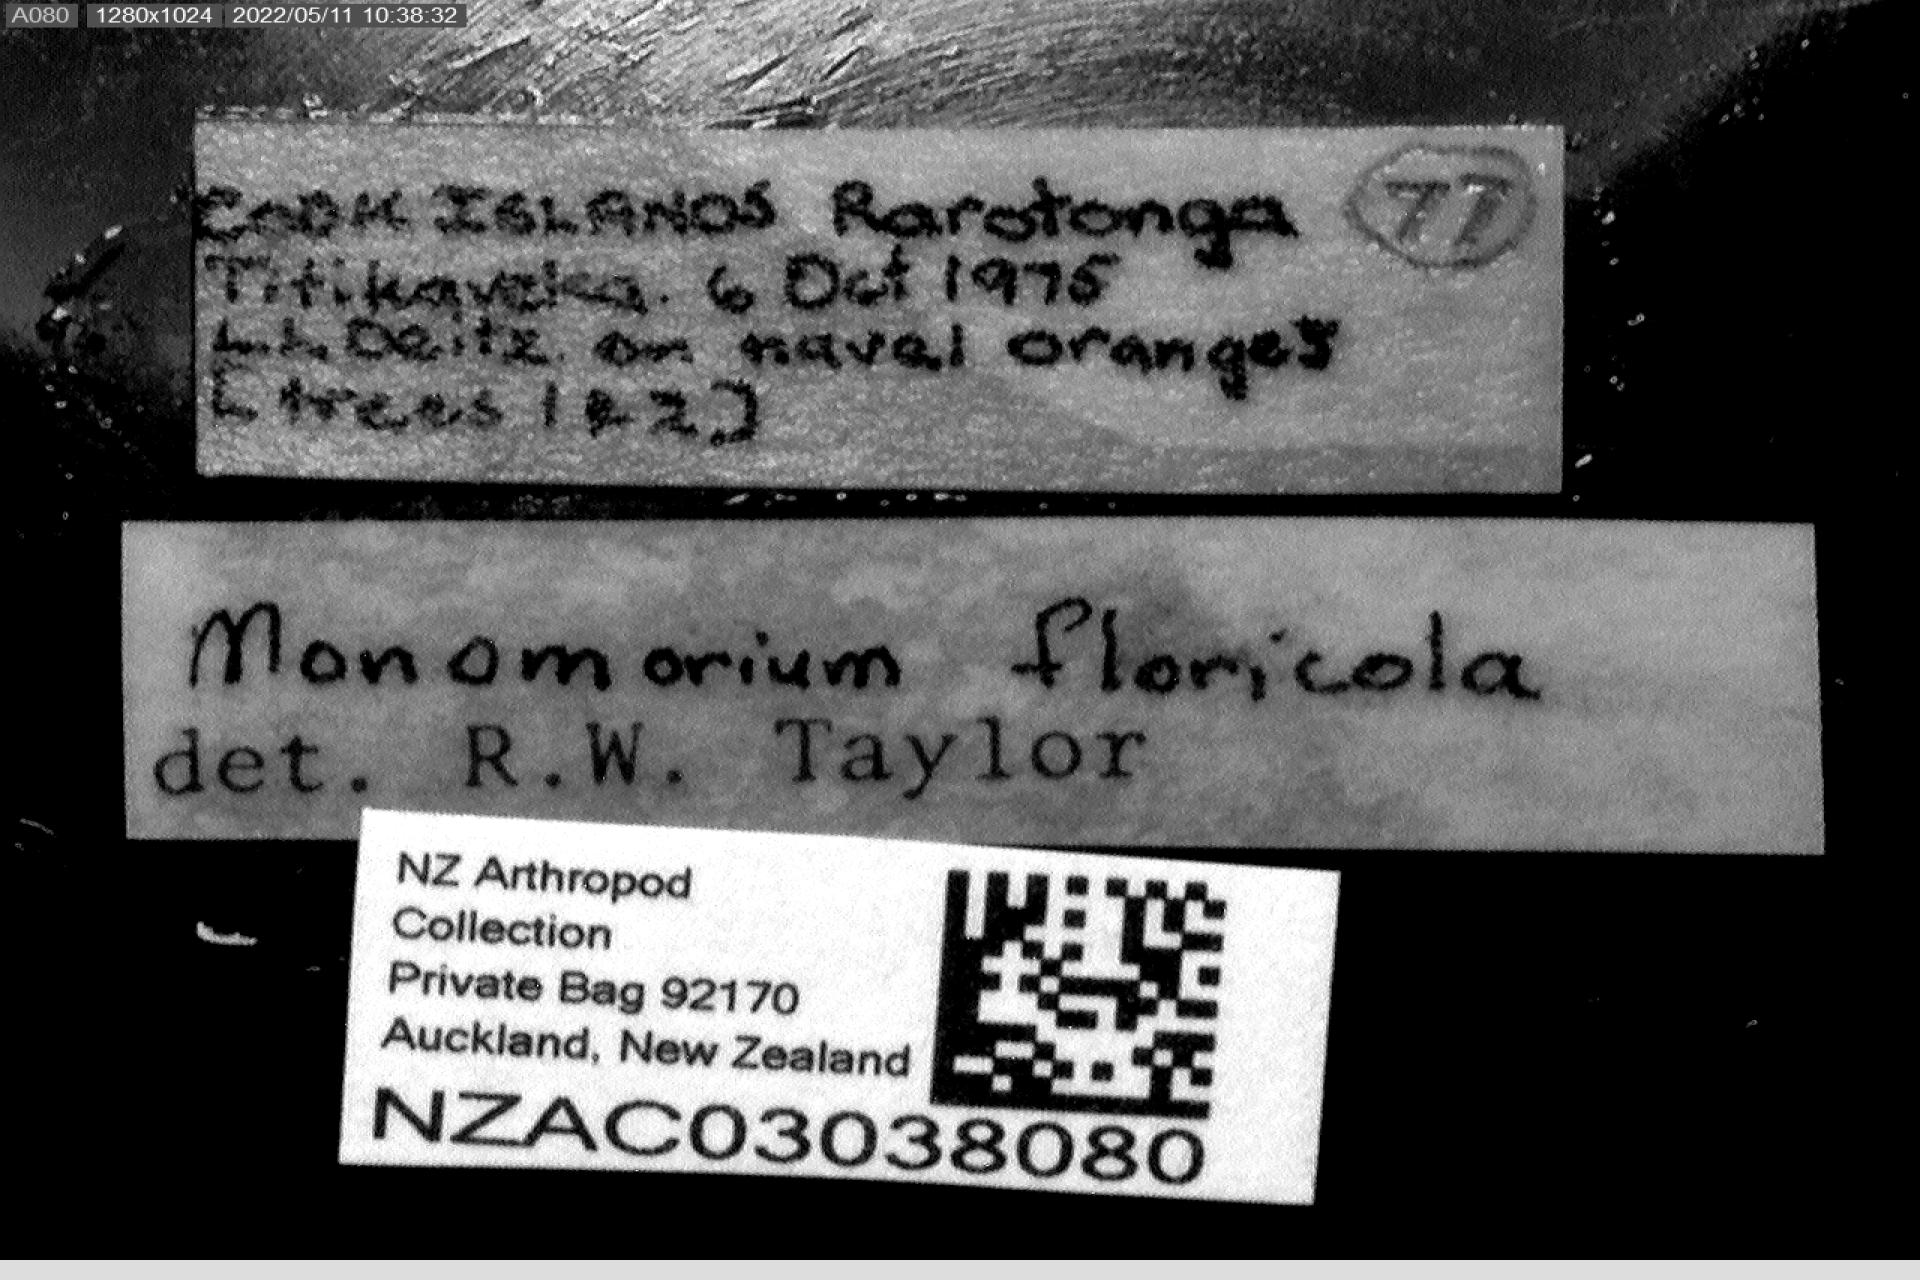 A080 1280x1024 2022/05/11 10:38:32
COOK ISLANDS Rarotonga 77
Titikaveka. 6 Oct 1975
L.L. Deitz. on navel oranges
[trees 1 & 2]
Monomorium floricola
det. R.W. Taylor
NZ Arthropod
Collection
Private Bag 92170
Auckland, New Zealand
NZAC03038080